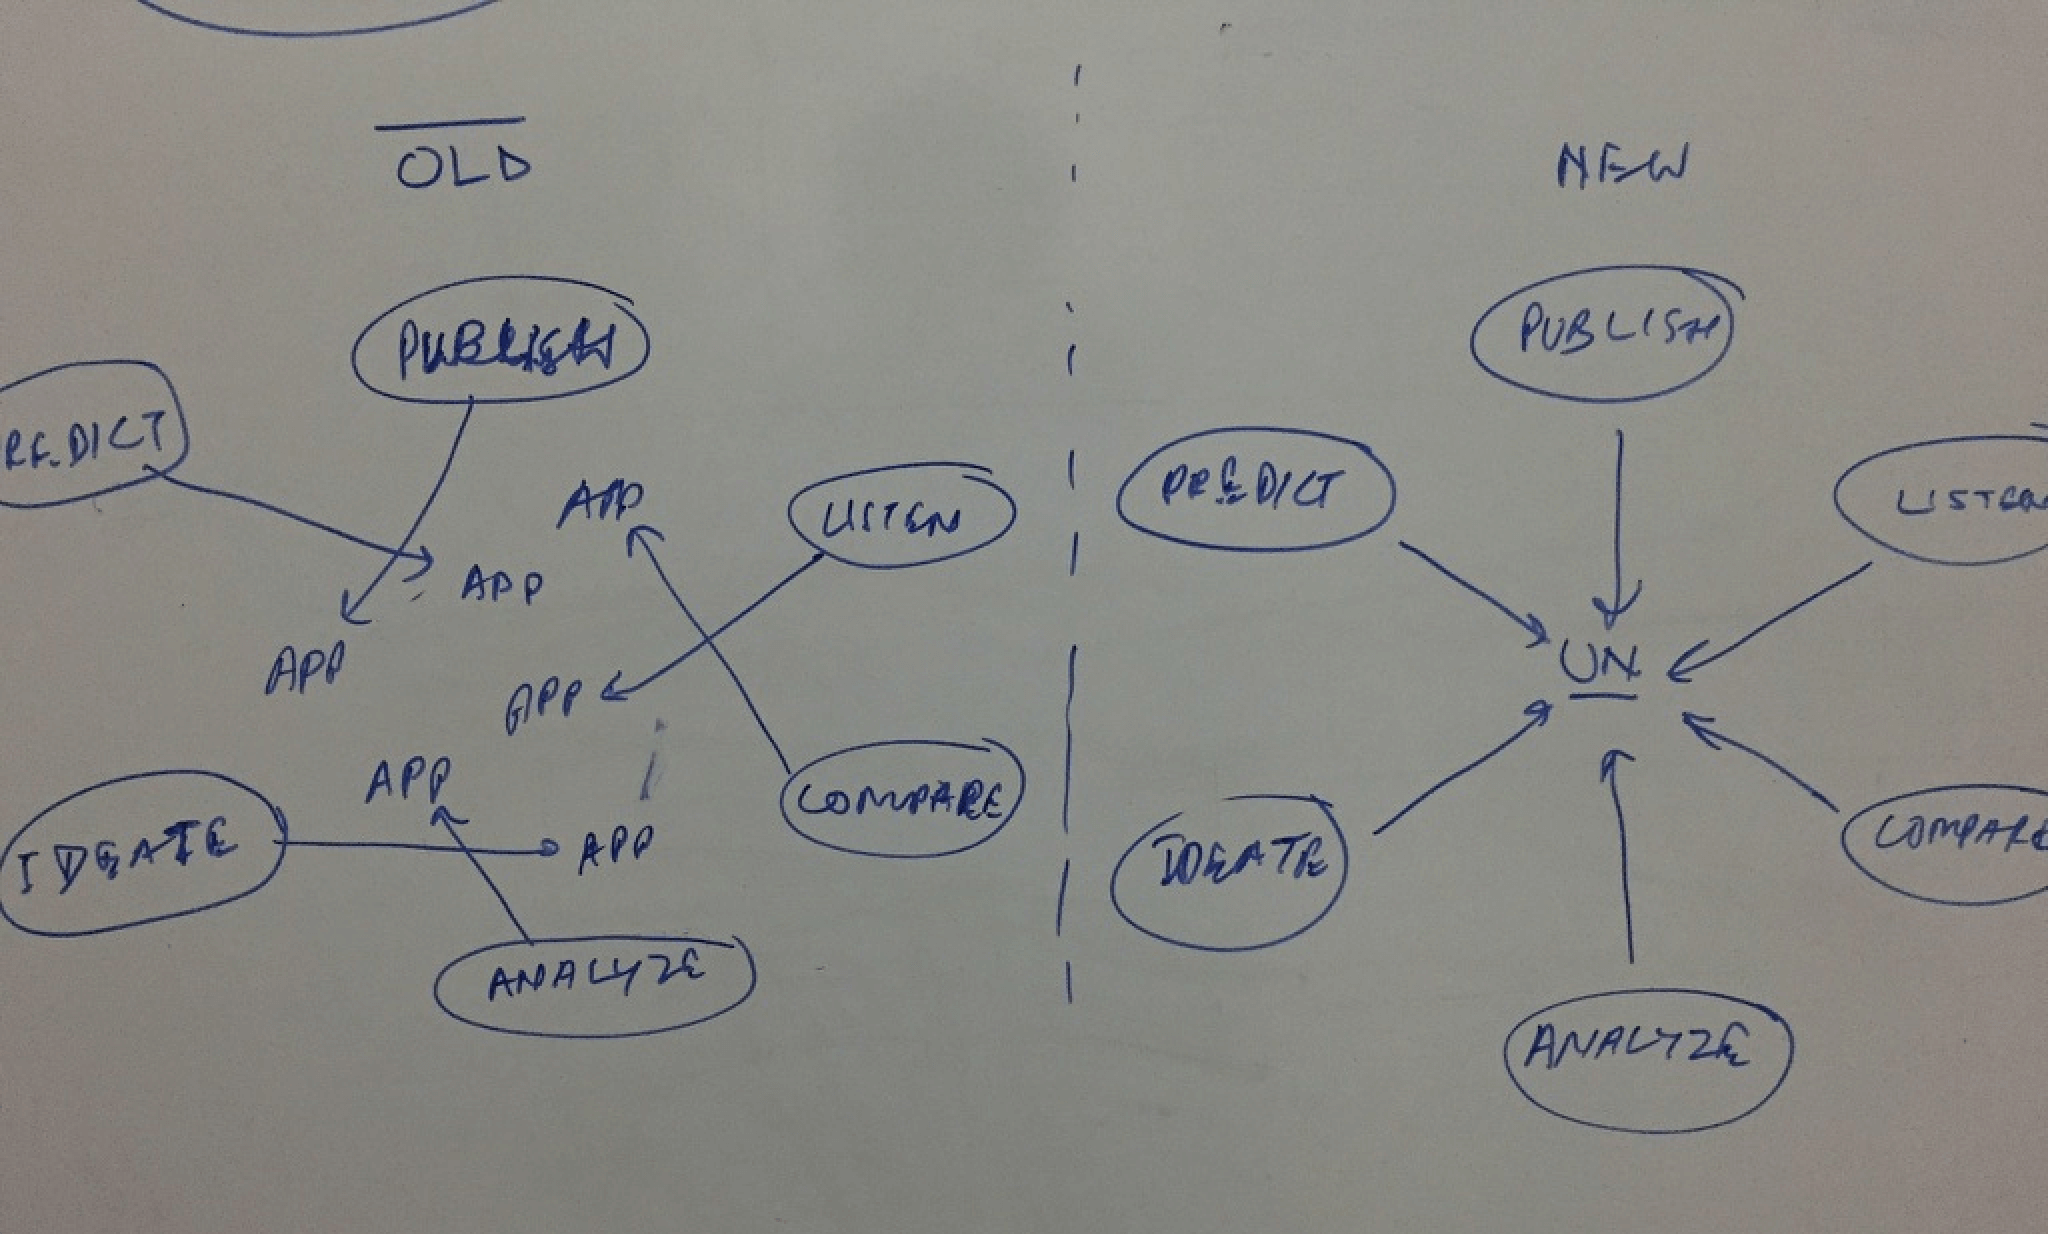 OLD
PUBLISH
REDICT
APP
LISTEN
APP
APP
APP
APP
COMPARE
IDEATE
APP
ANALYZE
NEW
PUBLISH
PREDICT
LISTEN
UN
IDEATE
COMPARE
ANALYZE